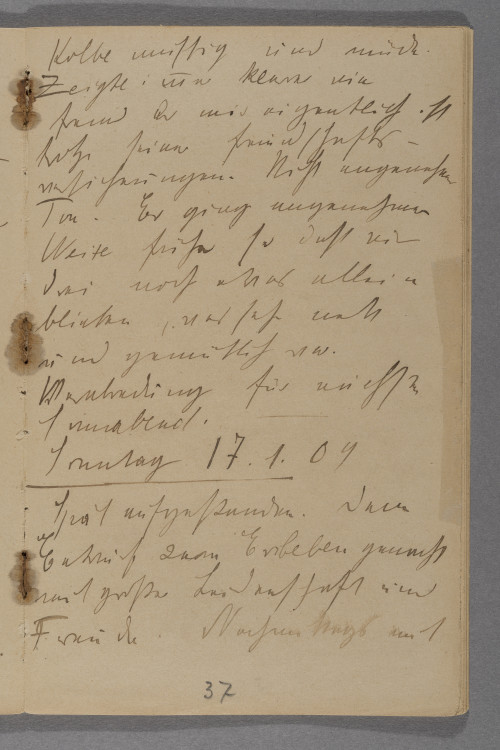 Kolbe mussig und müde.
Zeigte immer klarer wie
fremd Er mir eigentlich ist
trotz seiner freundschafts-
versicherungen. Nicht angenehmer
Ton. Er ging angenehmer
Weise früher so daß wir
drei noch etwas allein
blieben, was sehr nett
und gemütlich war.
Verabredung für nächsten
Sonnabend.
Sonntag 17.1.09
Spät aufgestanden. Dann
Entwurf zum Erdbeben gemacht
mit großer Leidenschaft und
Freude. Nachmittags mit
37